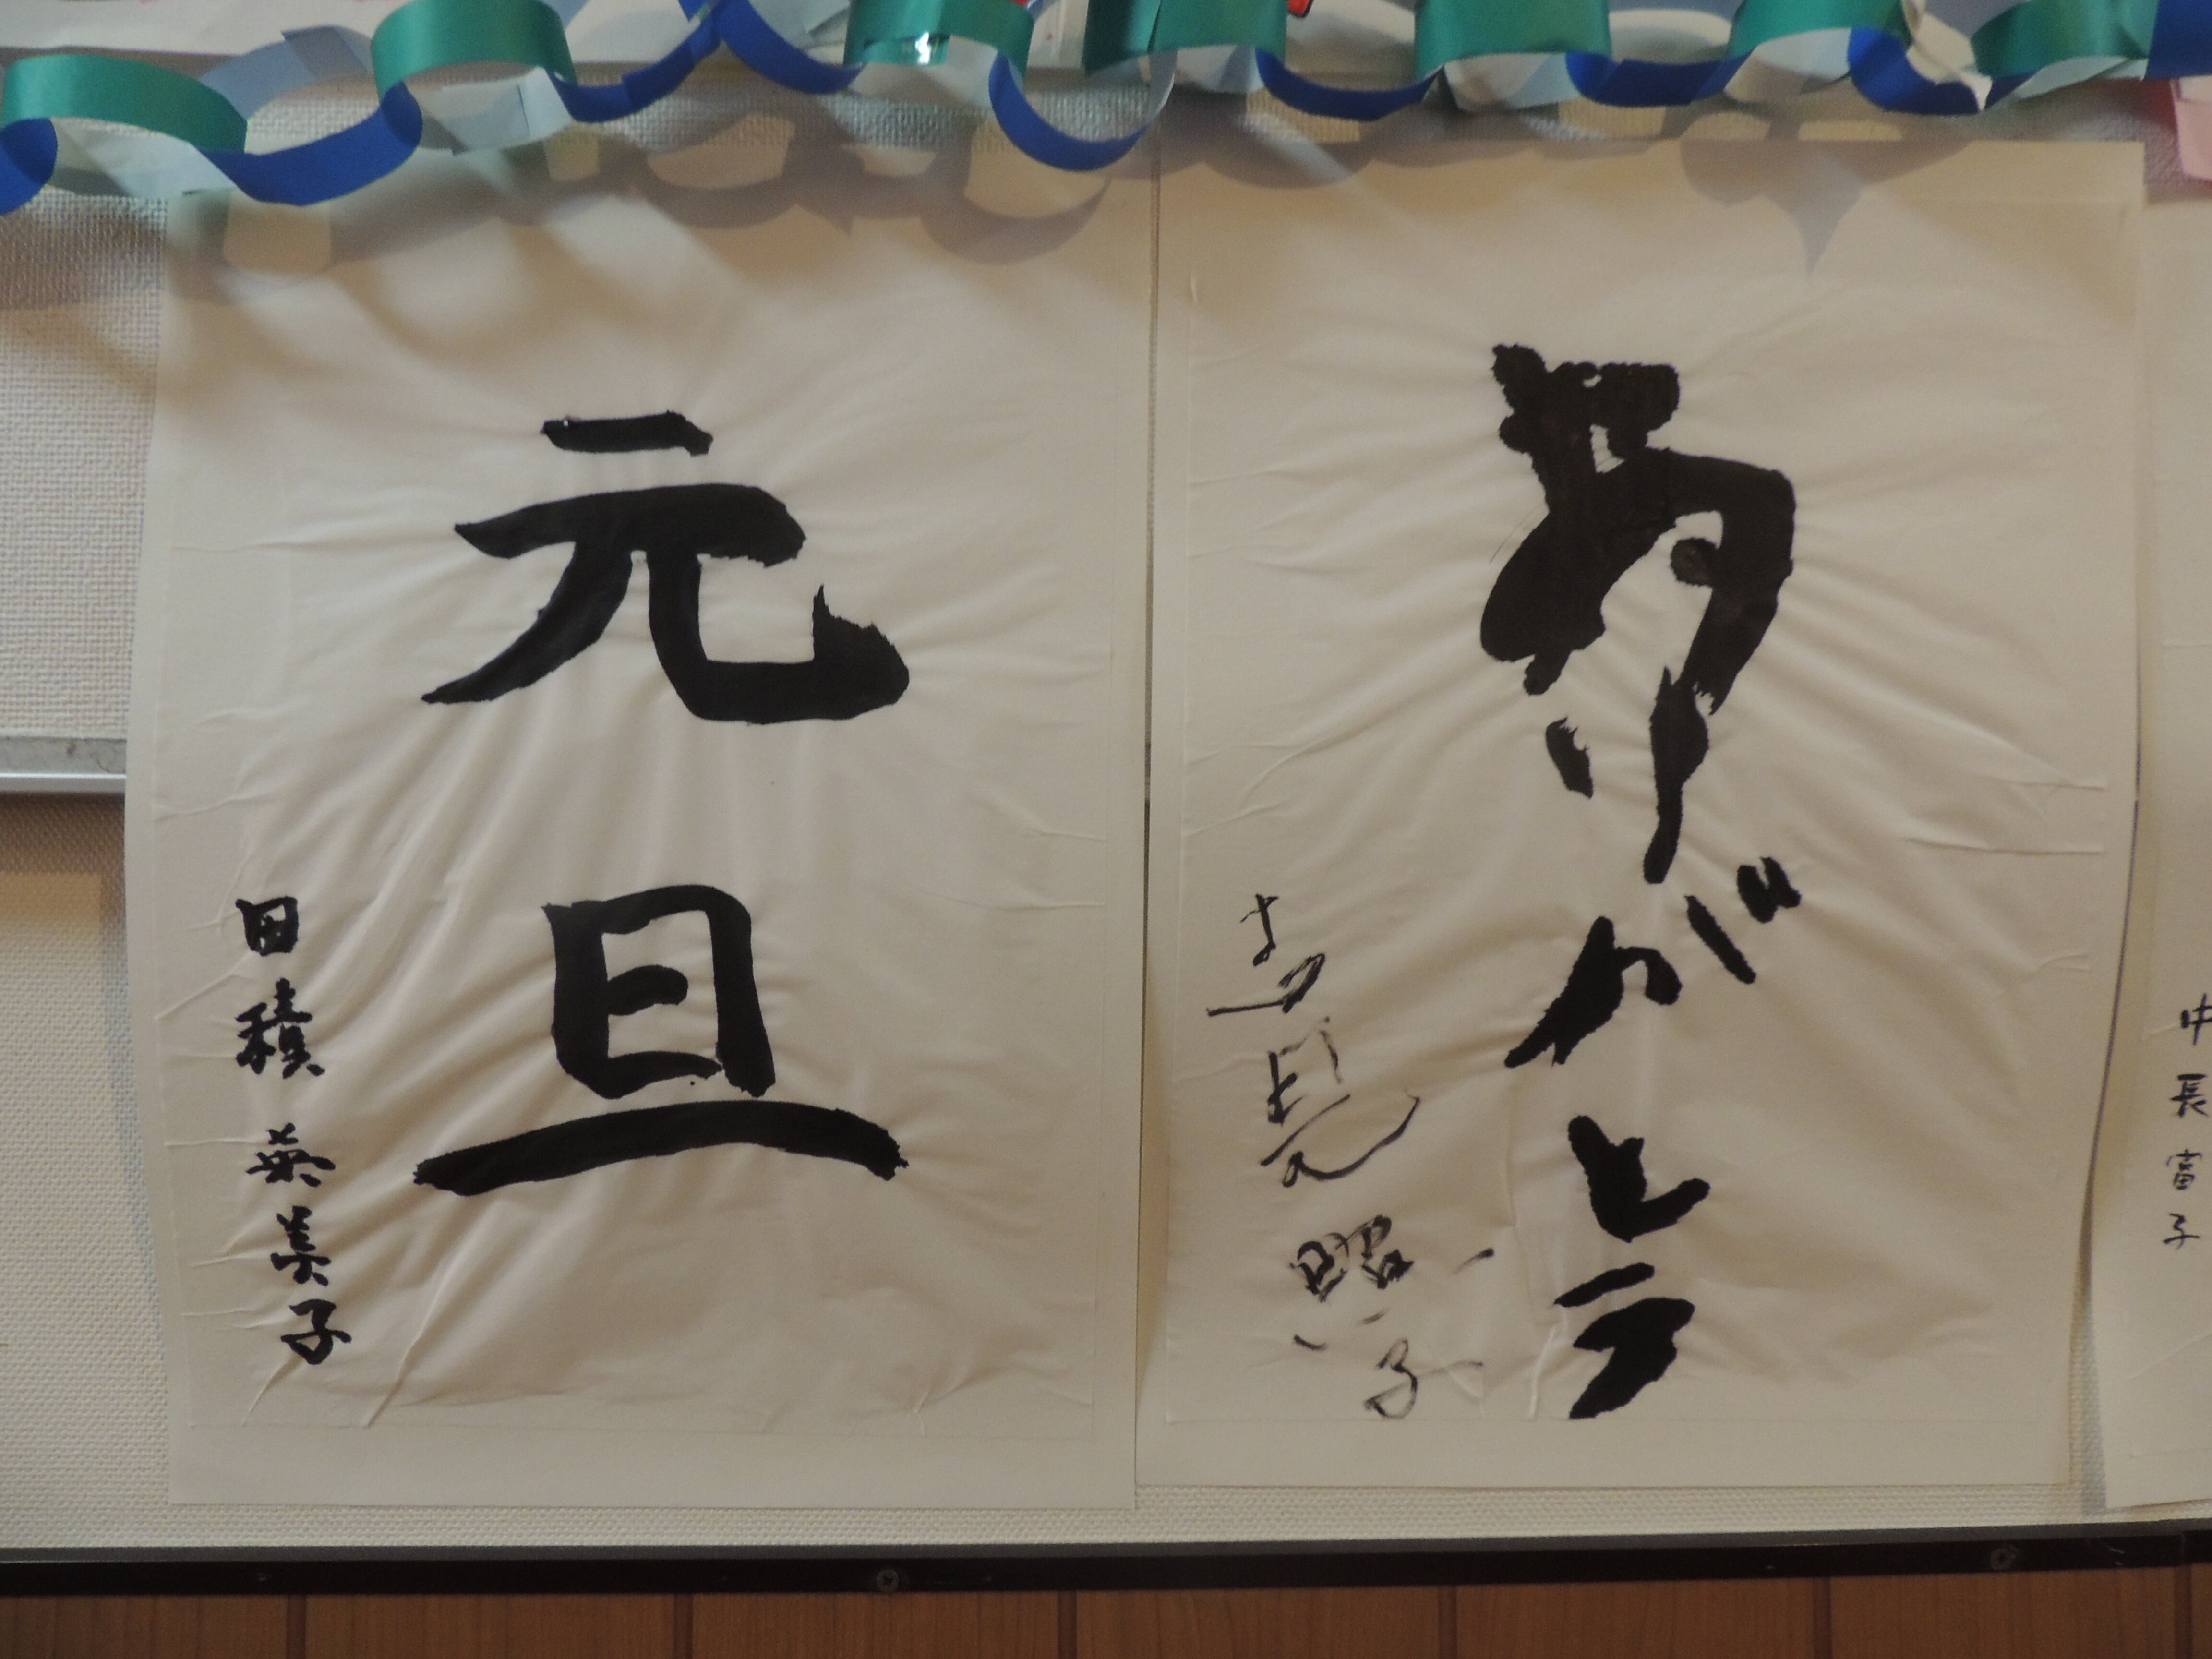 ありがとう
照子
元旦
田積 英美子
中長富子